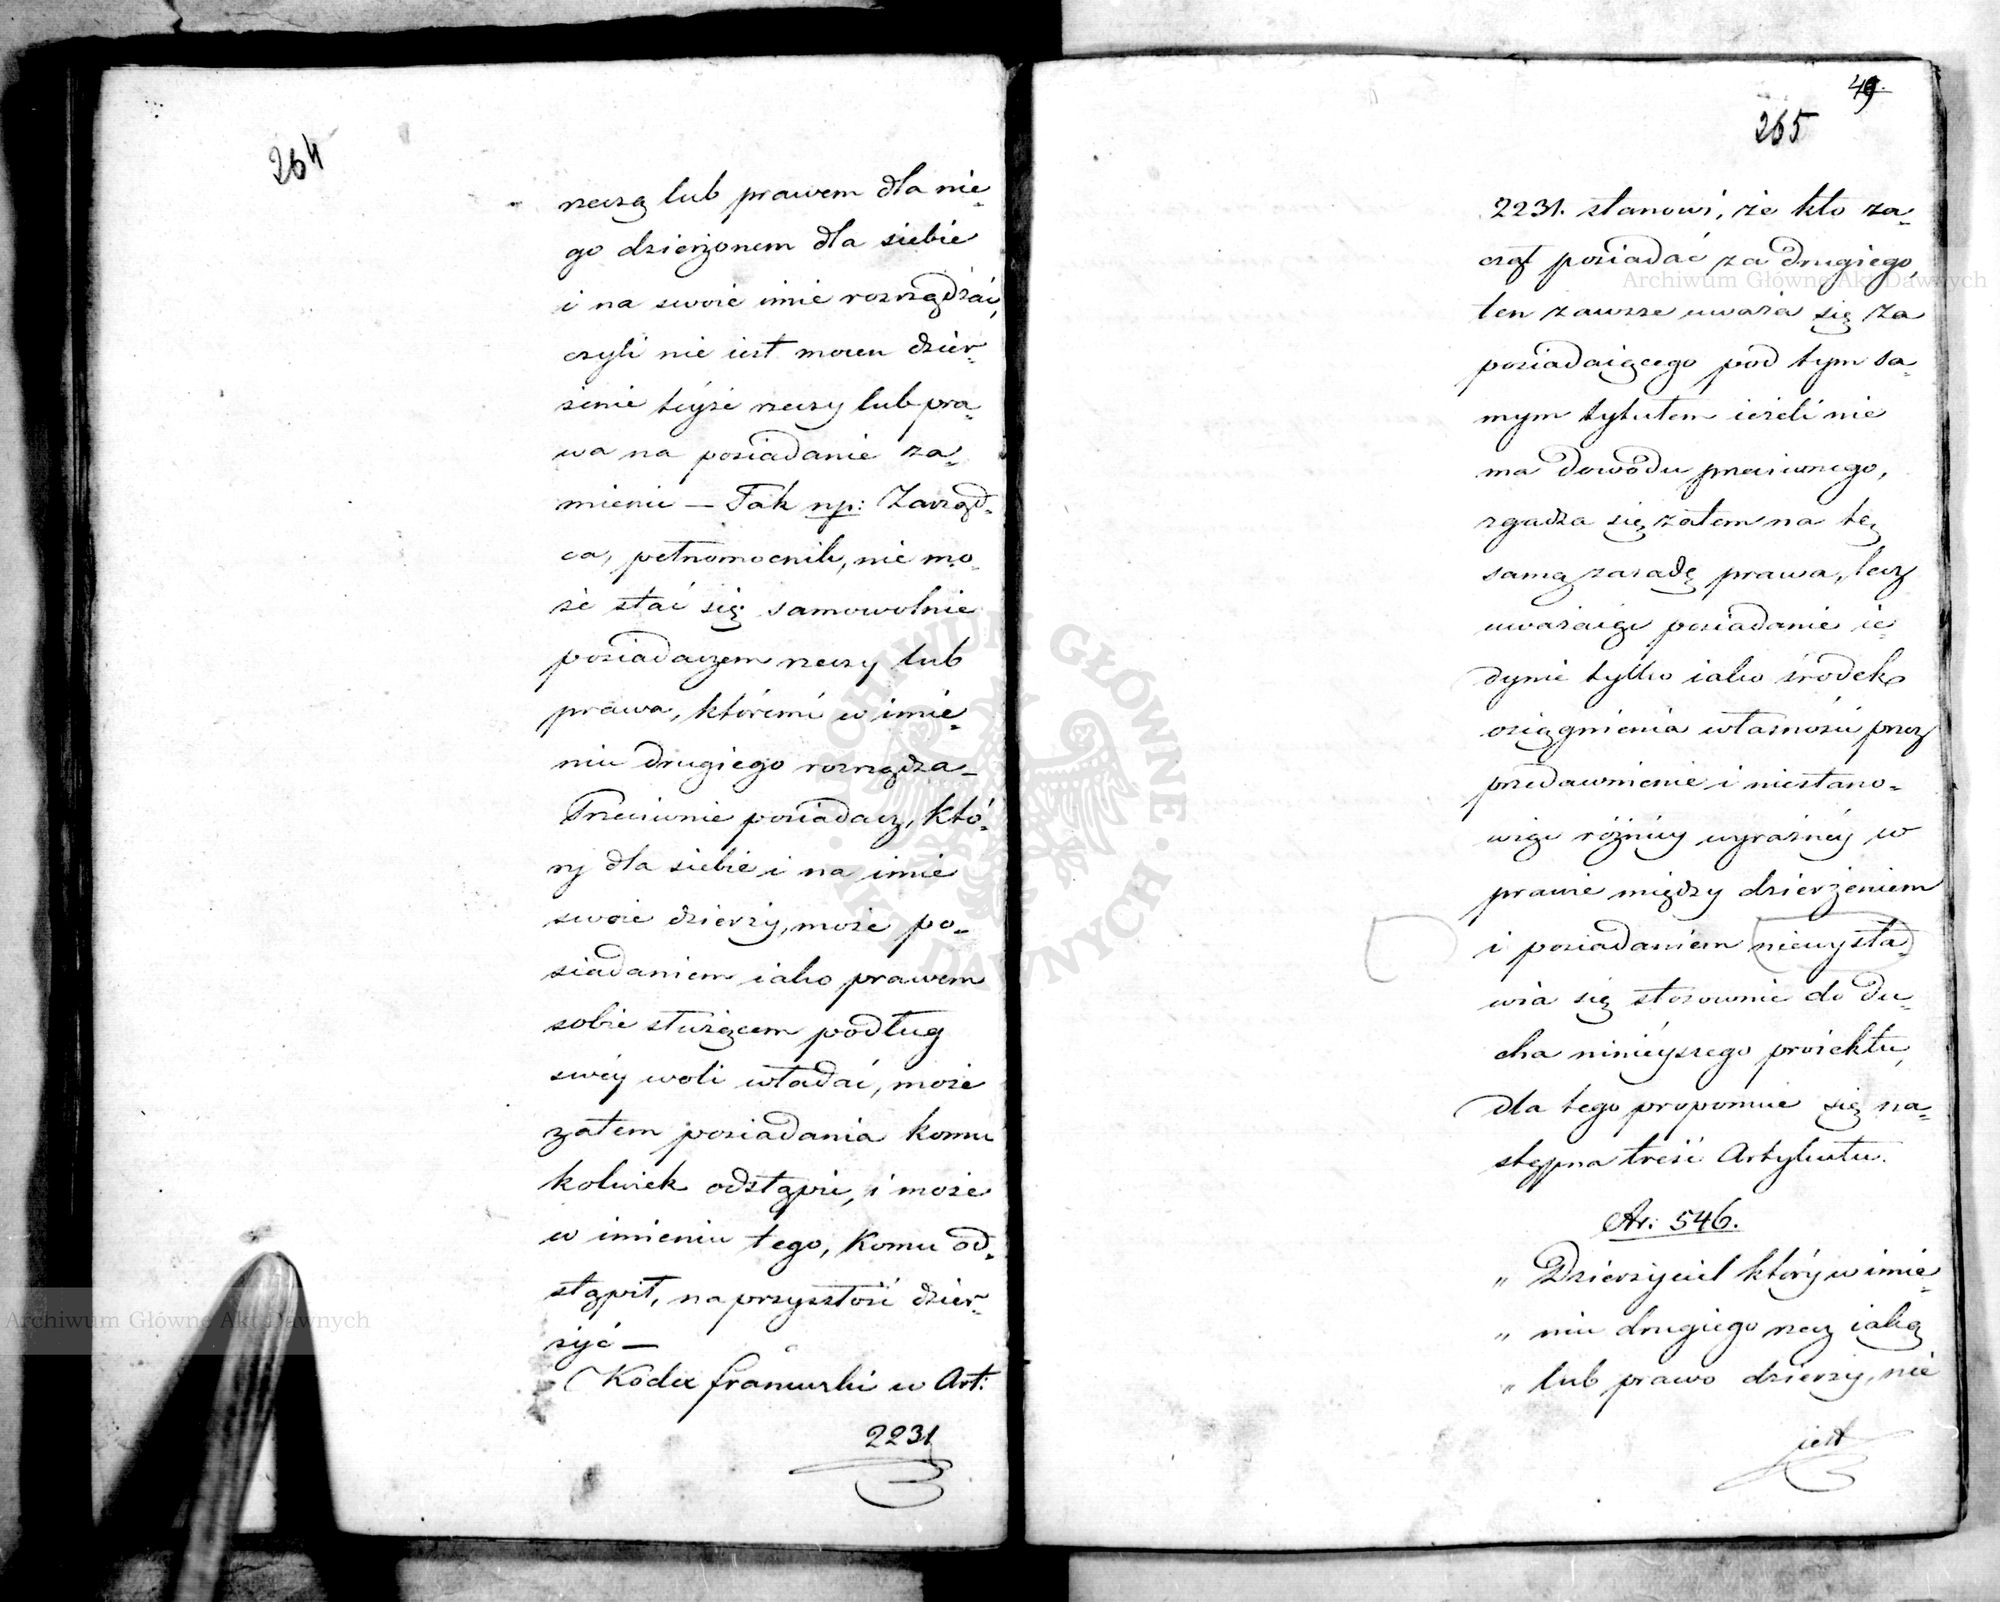 264
rzeczą lub prawem dla nie=
go dzierżonem dla siebie
i na swoie imie rozrządzać,
czyli nie iest mocen dzier=
żenie téyże rzeczy lub pra=
wa na posiadanie za=
mienić — Tak np: Zarząd=
ca, pełnomocnik, nie mo=
że stać się samowolnie
posiadaczem rzeczy lub
prawa, któremi w imie=
niu drugiego rozrządza —
Przeciwnie posiadacz, któ=
ry dla siebie i na imie
swoie dzierży, może po=
siadaniem iako prawem
sobie służącem podług
swéy woli władać, może
zatem posiadania komu
kolwiek odstąpić, i może
w imieniu tego, komu od=
stąpił, na przyszłość dzier=
żyć —
Kodex francuski w Art:
2231
49.
265
2231. stanowi, że kto za=
czął posiadać za drugiego,
ten zawsze uważa się za
posiadaiącego pod tym sa=
mym tytułem ieżeli nie
ma dowodu przeciwnego,
zgadza się zatem na tę
samą zasadę prawa, lecz
uważaiąc posiadanie ie=
dynie tylko iako środek
osiągnienia własności przez
przedawnienie i niestano=
wiąc różnicy wyraźnéy w
prawie między dzierżeniem
i posiadaniem niewysła=
wia się stosownie do du=
cha ninieyszego proiektu,
dla tego proponuie się na=
stępna treść Artykułu.
Ar: 546.
„ Dzierżyciel który w imie=
„ niu drugiego rzecz iaką
„ lub prawo dzierży, nie
iest
Archiwum Główne Akt Dawnych
Archiwum Główne Akt Dawnych
ARCHIWUM GŁÓWNE AKT DAWNYCH